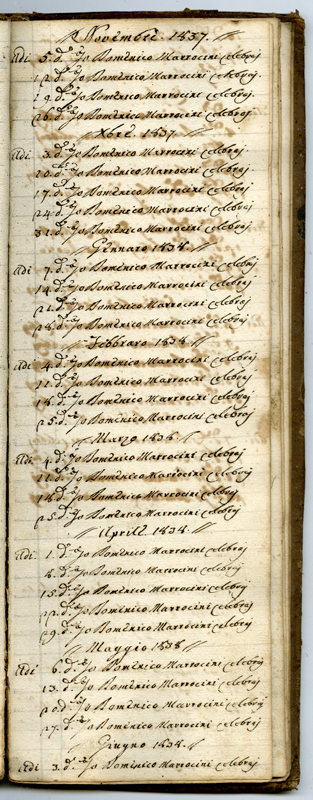 Novembre 1837.
Adi 5. d.º Io Domenico Marrocini celebraj
12. d.º Io Domenico Marrocini celebraj.
19. d.º Io Domenico Marrocini celebraj.
26. d.º Io Domenico Marrocini celebraj.
Xbre. 1837.
Adi 3. d.º Io Domenico Marrocini celebraj.
10. d.º Io Domenico Marrocini celebraj.
17. d.º Io Domenico Marrocini celebraj.
24. d.º Io Domenico Marrocini celebraj
31. d.º Io Domenico Marrocini celebraj
Gennaro 1838.
Adi 7. d.º Io Domenico Marrocini celebraj
14. d.º Io Domenico Marrocini celebraj
21. d.º Io Domenico Marrocini celebraj
28. d.º Io Domenico Marrocini celebraj
Febbraro 1838.
Adi 4. d.º Io Domenico Marrocini celebraj
11. d.º Io Domenico Marrocini celebraj
18. d.º Io Domenico Marrocini celebraj
25. d.º Io Domenico Marrocini celebraj
Marzo 1838.
Adi 4. d.º Io Domenico Marrocini celebraj
11. d.º Io Domenico Marrocini celebraj
18. d.º Io Domenico Marrocini celebraj
25. d.º Io Domenico Marrocini celebraj
Aprile 1838.
Adi 1. d.º Io Domenico Marrocini celebraj
8. d.º Io Domenico Marrocini celebraj
15. d.º Io Domenico Marrocini celebraj
22. d.º Io Domenico Marrocini celebraj
29. d.º Io Domenico Marrocini celebraj
Maggio 1838
Adi 6. d.º Io Domenico Marrocini celebraj
13. d.º Io Domenico Marrocini celebraj
20. d.º Io Domenico Marrocini celebraj
27. d.º Io Domenico Marrocini celebraj
Giugno 1838.
Adi 3. d.º Io Domenico Marrocini celebraj